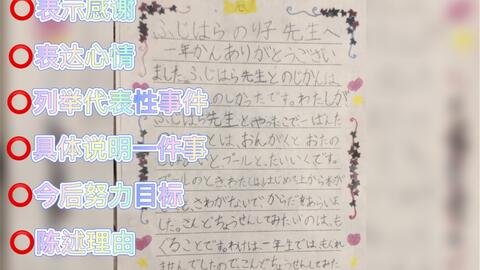 表示感谢
表达心情
列举代表性事件
具体说明一件事
今后努力目标
陈述理由
ふじはら のり子 先生へ
一年かんありがとうござい
ました。ふじはら先生とのじかんは
のしかったです。わたしが
ふじはら先生と やったことで一ばんた
とは、おんがくと おたの
とプールと、たいいくです。
プールのとき、わたしははじめ上から水が
さわがないで からだをあらいま
した。こんどちょうせんしてみたいのは、も
ぐることです。わけは一年生では、もぐれ
ませんでしたので、こんどちょうせんしてみた